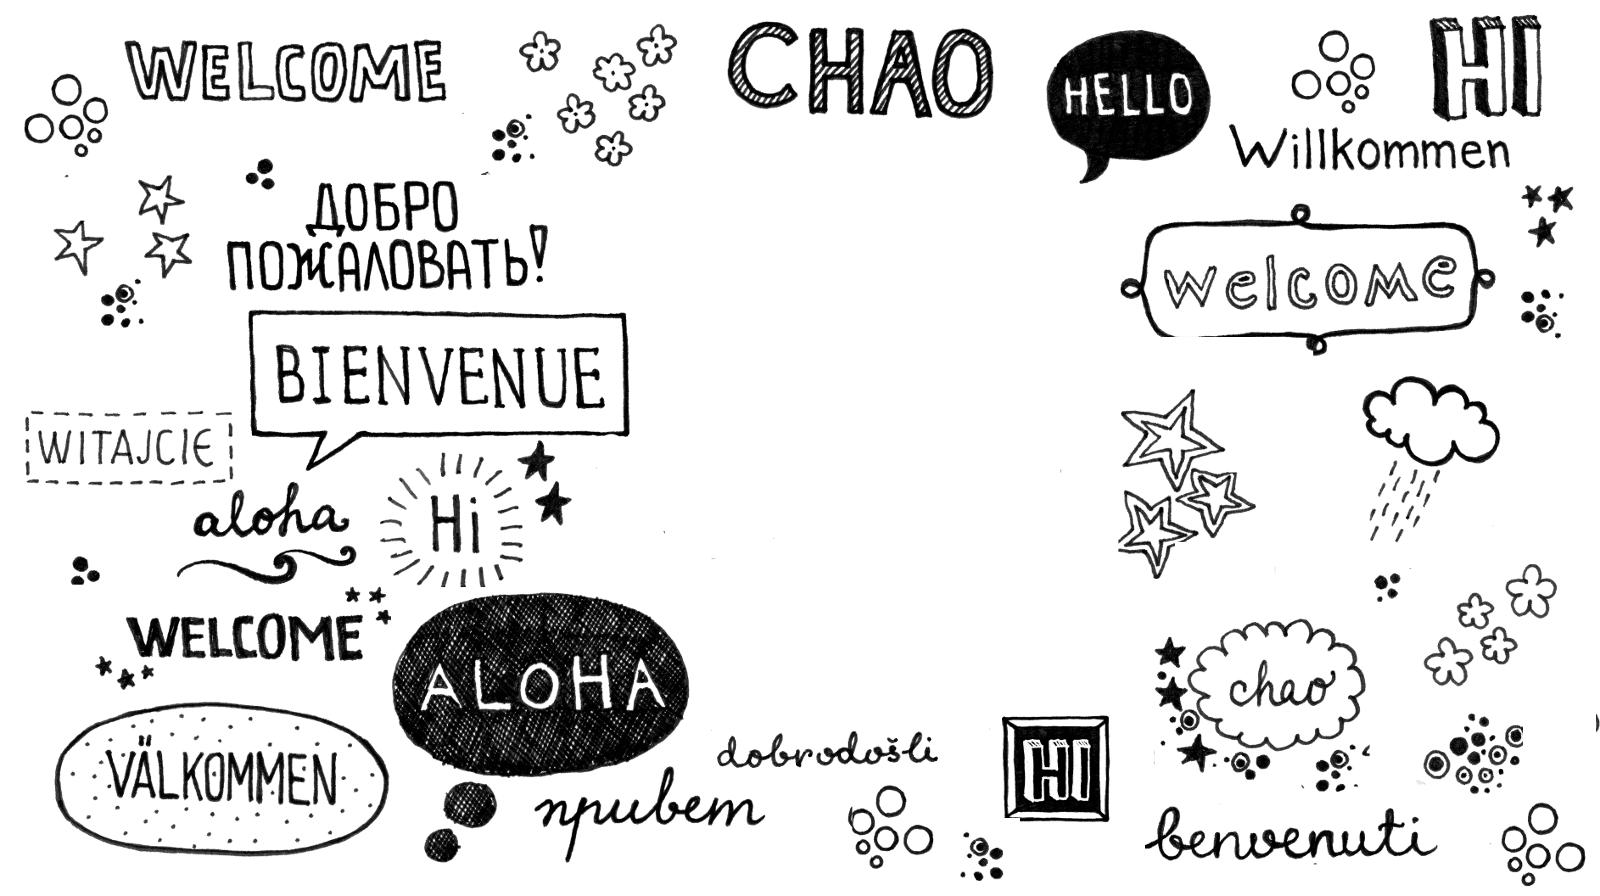 WELCOME
CHAO
HELLO
HI
Willkommen
ДОБРО
ПОЖАЛОВАТЬ!
welcome
BIENVENUE
WITAJCIE
aloha
Hi
WELCOME
ALOHA
chao
VÄLKOMMEN
dobrodošli
HI
привет
benvenuti